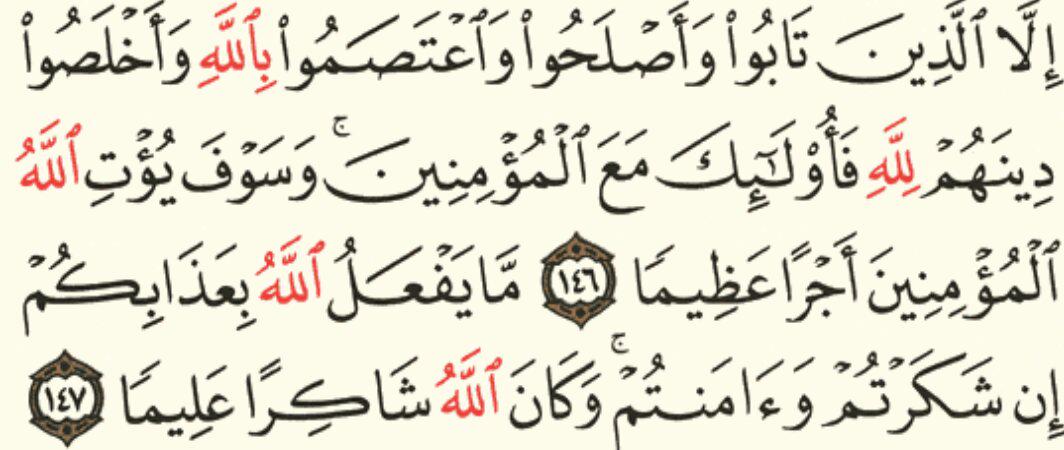 إِلَّا ٱلَّذِينَ تَابُوا۟ وَأَصْلَحُوا۟ وَٱعْتَصَمُوا۟ بِٱللَّهِ وَأَخْلَصُوا۟
دِينَهُمْ لِلَّهِ فَأُو۟لَـٰٓئِكَ مَعَ ٱلْمُؤْمِنِينَ ۚ وَسَوْفَ يُؤْتِ ٱللَّهُ
ٱلْمُؤْمِنِينَ أَجْرًا عَظِيمًا ١٤٦ مَّا يَفْعَلُ ٱللَّهُ بِعَذَابِكُمْ
إِن شَكَرْتُمْ وَءَامَنتُمْ ۚ وَكَانَ ٱللَّهُ شَاكِرًا عَلِيمًا ١٤٧